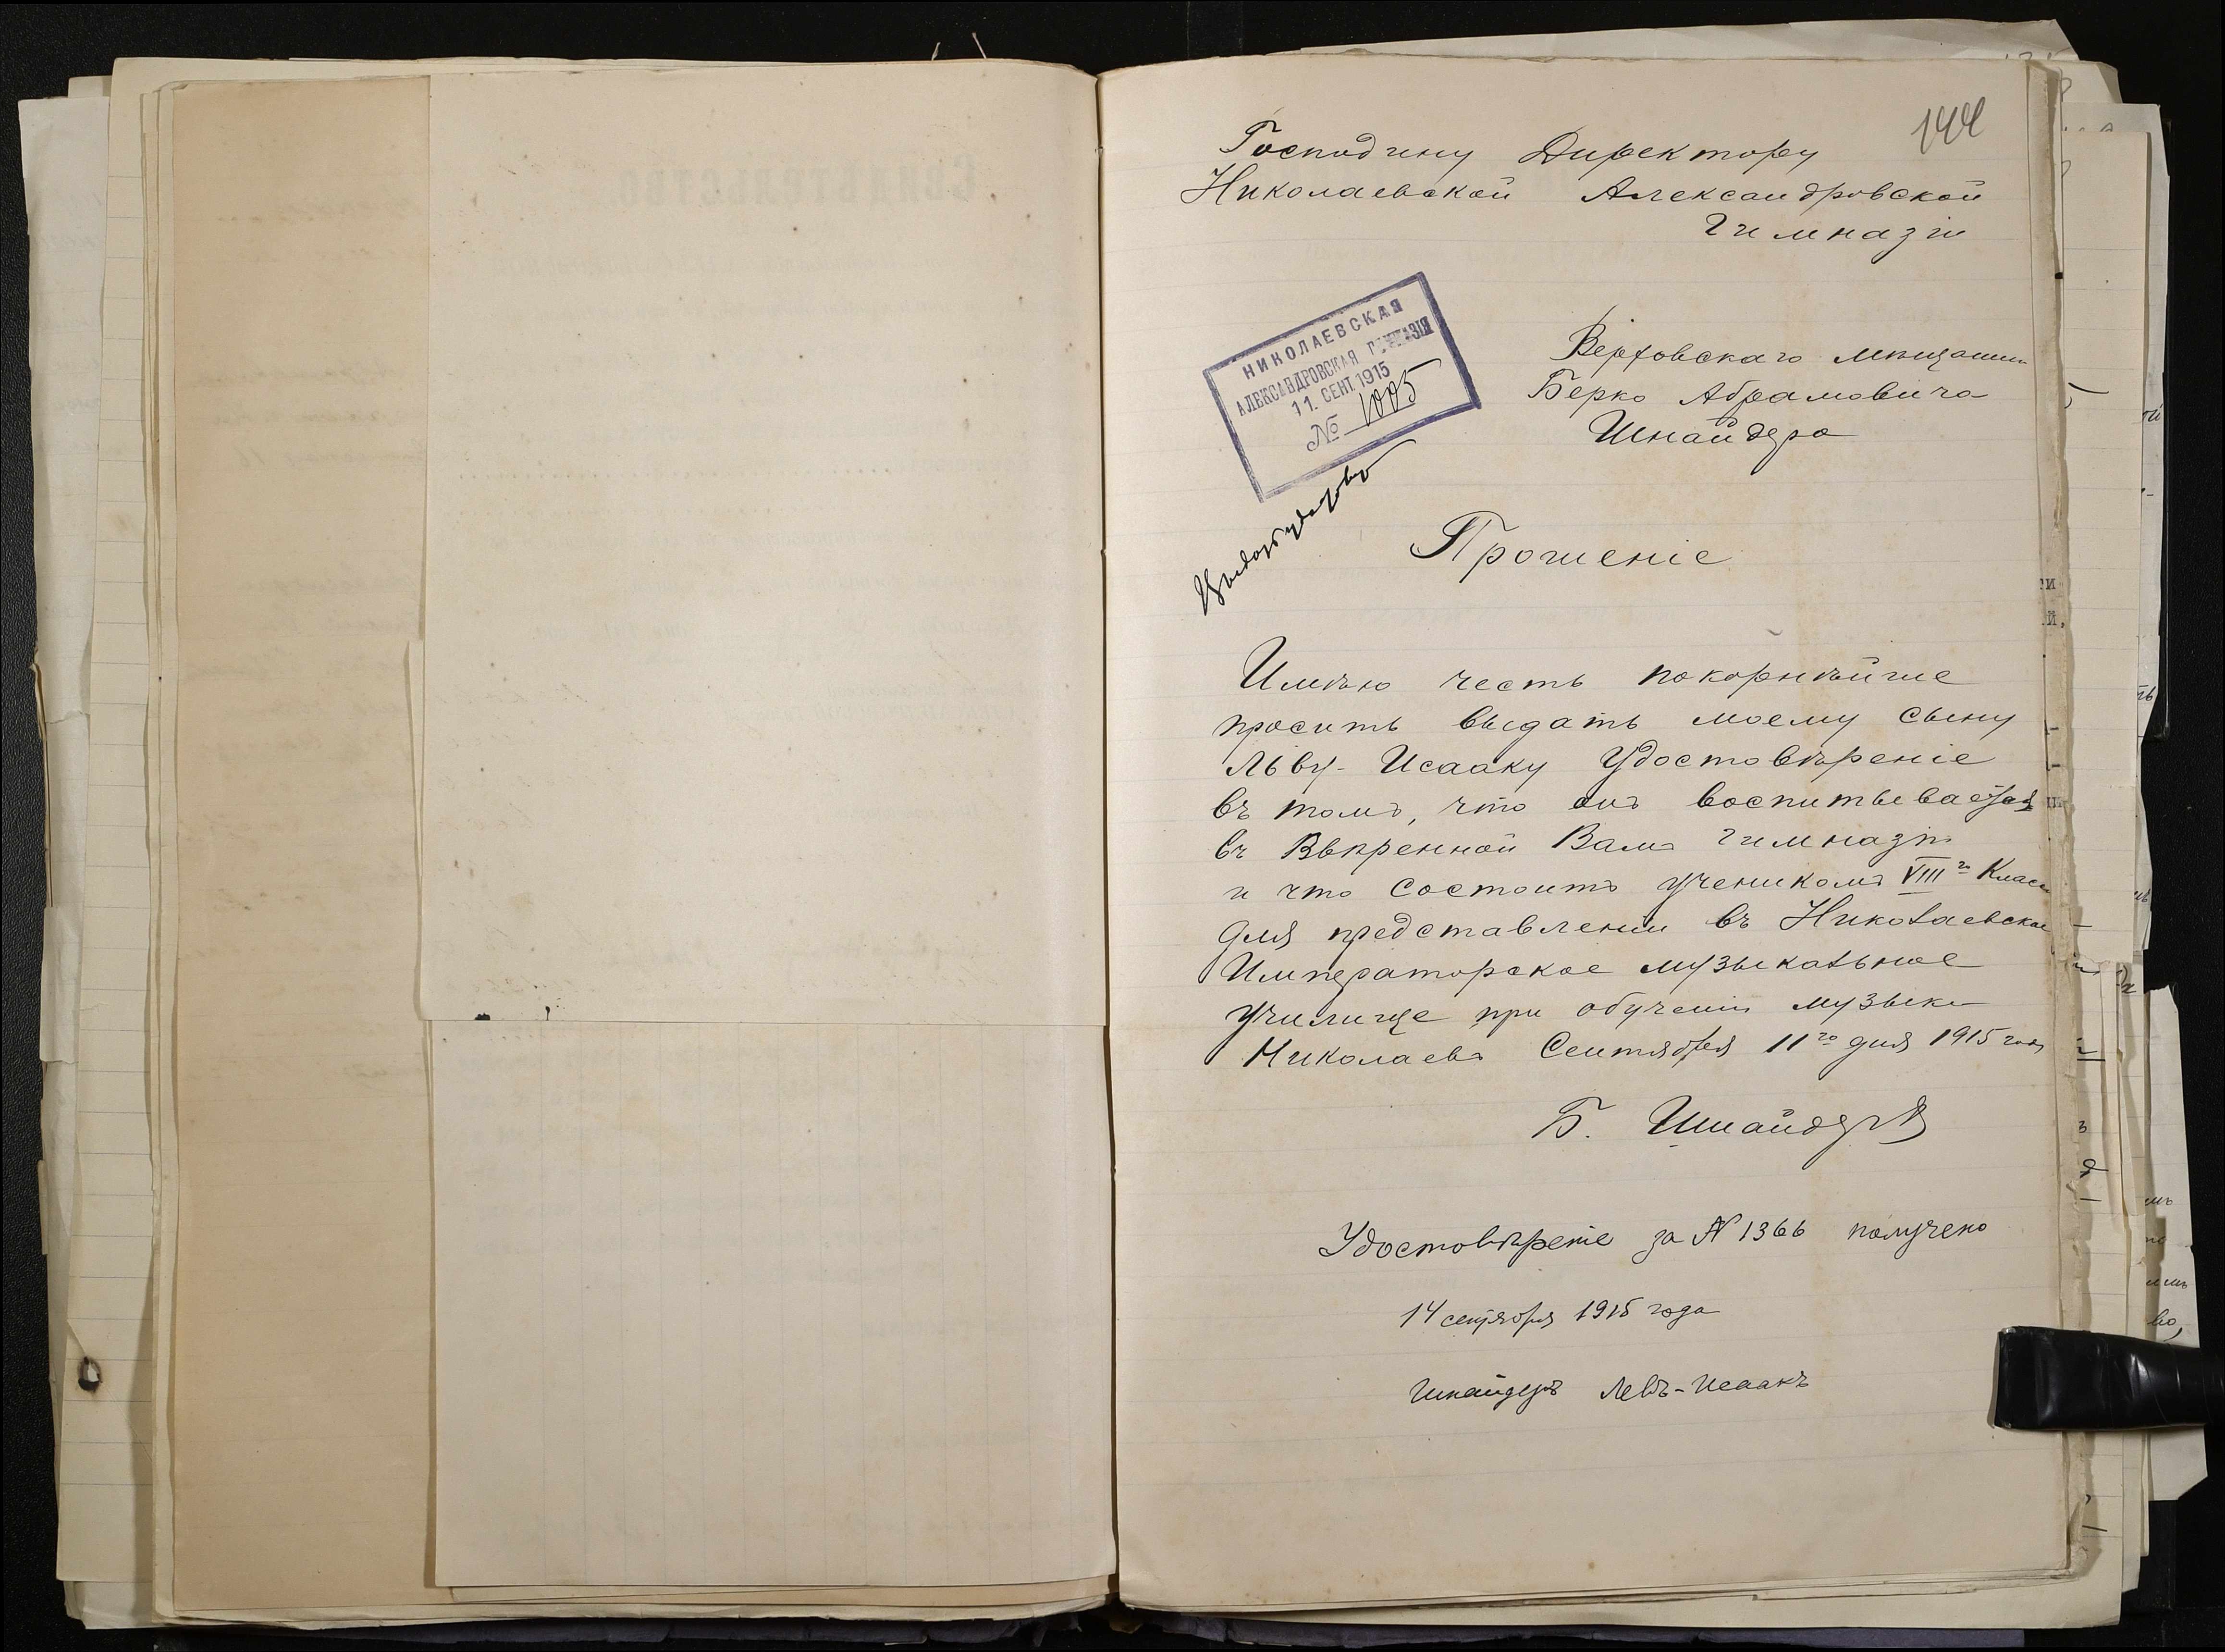 144
Господину Директору
Николаевской Александровской
Гимназіи
НИКОЛАЕВСКАЯ
АЛЕКСАНДРОВСКАЯ ГИМНАЗІЯ
11. СЕНТ. 1915
№ 1005
мѣщанина
Берко Абрамовича
Шнайдера
Прошеніе
Имѣю честь покорнѣйше
просить выдать моему сыну
Льву-Исааку Удостовѣреніе
въ томъ, что онъ воспитывается
въ Ввѣренной Вамъ гимназіи
и что состоитъ ученикомъ VIII го Класса
для представленіи въ Николаевское
Императорское музыкальное
училище при обученіи музыки
Николаевъ Сентября 11го дня 1915 года
Б. Шнайдеръ
Удостовѣреніе за № 1366 получено
14 сентября 1915 года
Шнайдеръ Левъ-Исаакъ